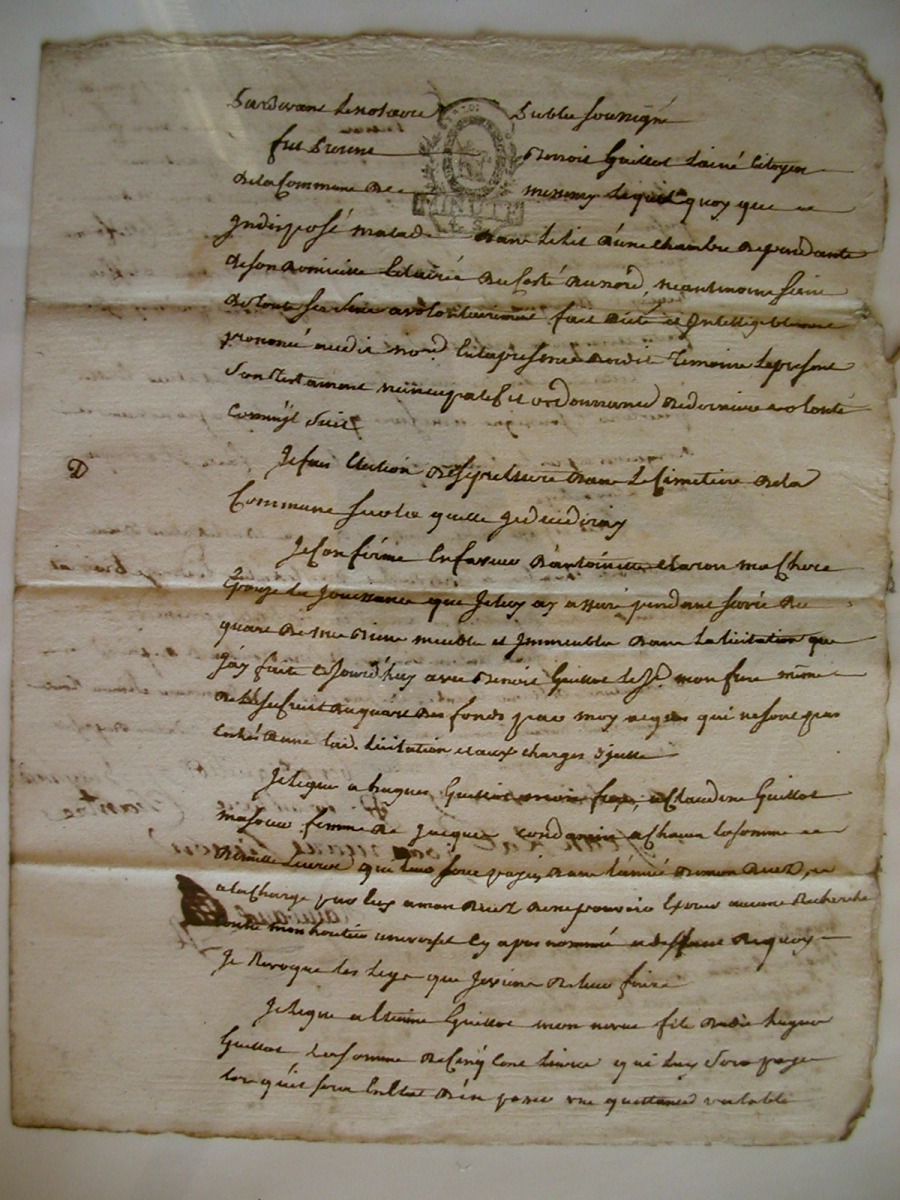 Pardevant le notaire Public soussigné
fut Present Benoit Guillot L'ainé Citoyen
LA LOI
MINUTE
De la Commune de lequel quoy que
Indisposé malade dans le lit d'une chambre dependante
de son domicille Eclairée du Costé du nord, neantmoins sain
de tout ses sens a volontairement fait dicté et Intelligiblement
prononcé audit no.re En la presence desdits Temoins le present
son Testament nuncupatif et ordonnance de derniere volonté
comm'jl suit
Je fais Election de sepulture dans le Cimetiere de la
Commune sur la quelle je decederay
Je Confirme En faveur d'antoinette ma Chere
Epouze la Jouissance que je luy ay assuré pendant sa vie du
quart de mes biens meubles et Immeubles dans la licitation que
J'ay faite cejourd'huy avec Benoit Guillot le J.e mon frere même
de l'usufruit du quart des fonds par moy acquis qui ne sont pas
entrés dans lad. licitation et aux charges d'jcelle
Je legue a hugues Guillot mon frere, a Claudine Guillot
ma soeur femme de Jacques a Chacun la somme
de mille Livres qui leur sera payée dans l'année de mon deces,
a la Charge par eux a mon deces de ne pouvoir Exercer aucune Recherche
contre mon heritier universel Cy apres nommé a deffaut de quoy
Je Revoque les legs que je viens de leur faire
Je legue a Etienne Guillot mon neveu fils dudit hugues
Guillot la somme de Cinq Cent Livres qui luy sera payée
lorsqu'il sera En Etat d'En passer une quittance valable